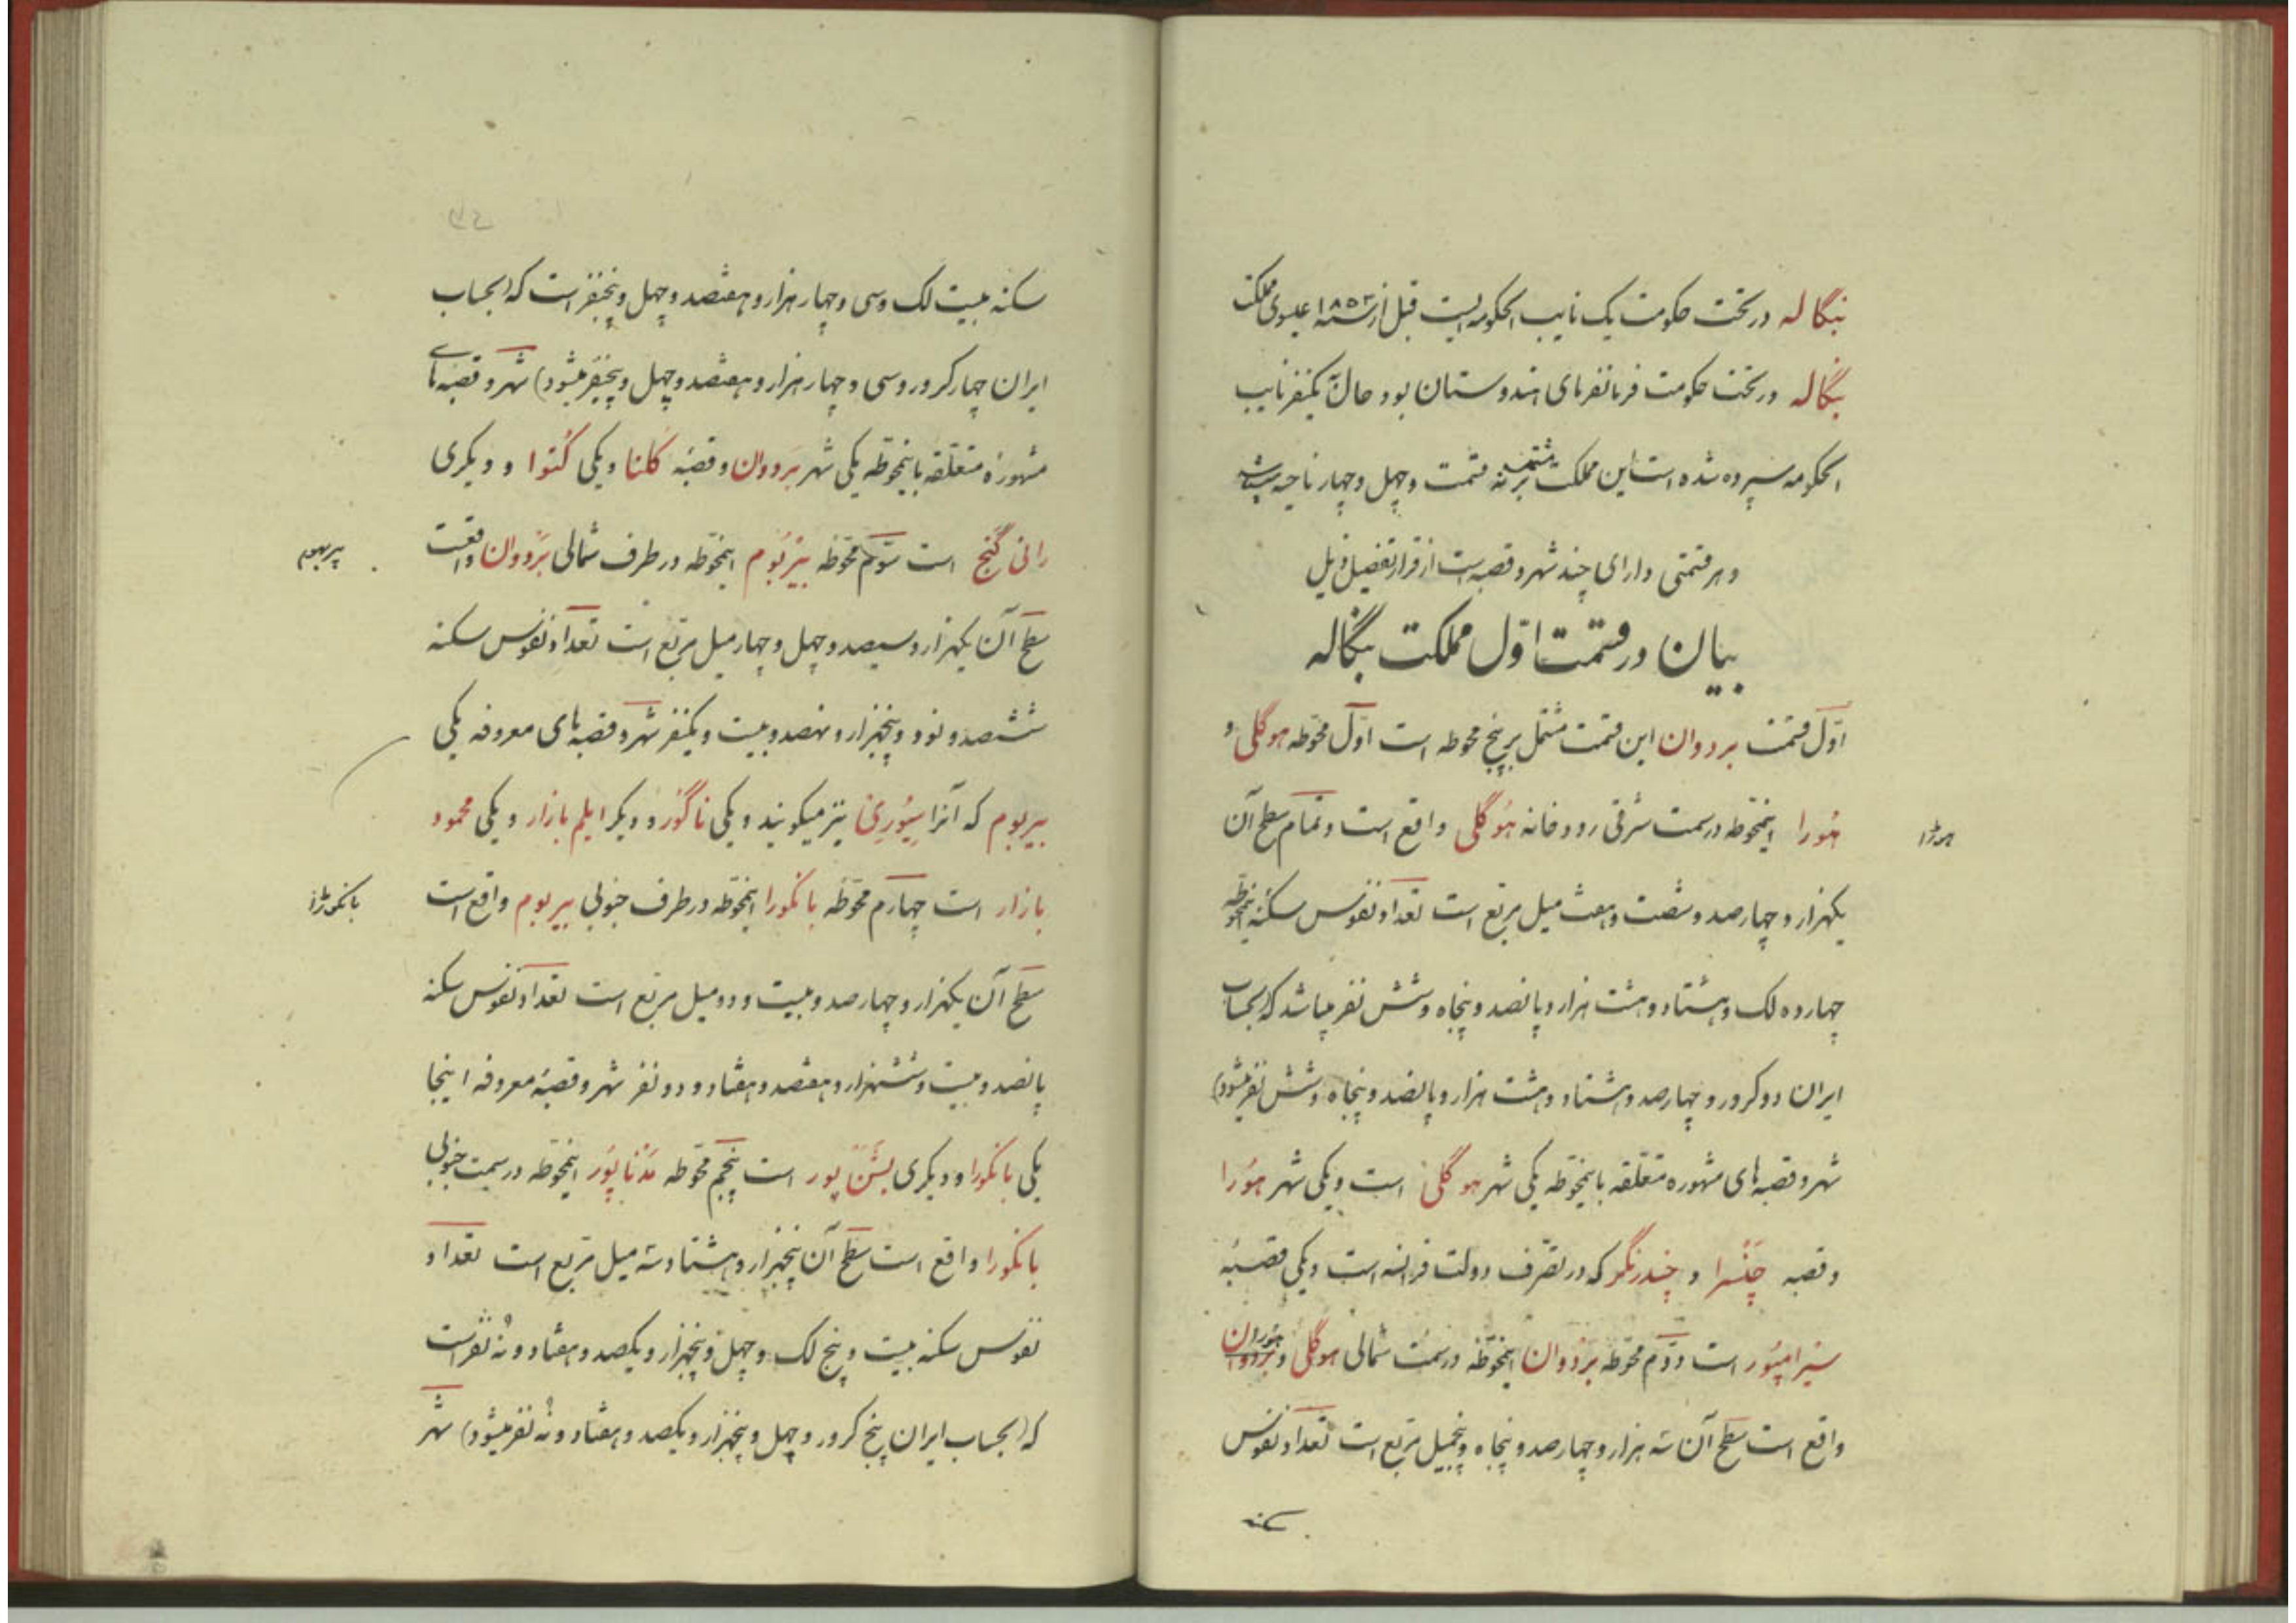 بنگاله در تحت حکومت یک نایب الحکومه ایست قبل از سنه ۱۸۵۳ عیسوی مملکت
بنگاله در تحت حکومت فرمانفرمای هندوستان بود حال بیکنفر نایب
الحکومه سپرده شده است این مملکت مشتمل بر نه قسمت و چهل و چهار ناحیه میباشد
و هر قسمتی دارای چند شهر و قصبه است از قرار تفصیل ذیل
بیان در قسمت اوّل مملکت بنگاله
اوّل قسمت بردوان این قسمت مشتمل بر پنج محوطه است اوّل محوّطه هوگلی و
هُورا اینمحوّطه در سمت شرقی رودخانه هُوگلی واقع است و تمام سطح آن
هورڑا
یکهزار و چهارصد و شصت و هفت میل مربّع است تعداد نفوس سکنه اینمحوّطه
چهارده لک و هشتاد و هشت هزار و پانصد و پنجاه و شش نفر میباشد که (بحساب
ایران دو کرور و چهارصد و هشتاد و هشت هزار و پانصد و پنجاه و شش نفر میشود)
شهر و قصبه‌های مشهوره متعلّقه باینمحوّطه یکی شهر هوگلی است و یکی شهر هوُرا
و قصبه چنُسرا و چندرنگر که در تصّرف دولت فرانسه است و یکی قصبهٔ
سیرامپُور است دوّم محوّطه بَرْدوان اینمحوّطه در سمت شمالی هوگلی و هوُرا
واقع است سطح آن سه هزار و چهارصد و پنجاه و پنجمیل مربّع است تعداد نفوس
سکنه
سکنه بیست لک و سی و چهار هزار و هفتصد و چهل و پنجنفر است که (بحساب
ایران چهار کرور و سی و چهار هزار و هفتصد و چهل و پنجنفر میشود) شهر و قصبه‌های
مشهورهٔ متعلّقه باینمحوّطه یکی شهر بَردوان و قصبهٔ کَلنا و یکی کُتوا و دیگری
رانی گَنج است سوّم محوّطه بیْربُوم اینمحوّطه در طرف شمالی بَردوان واقعست
بیربهوم
سطح آن یکهزار و سیصد و چهل و چهار میل مربّع است تعداد نفوس سکنه
ششصد و نود و پنجهزار و نهصد و بیست و یکنفر شهر و قصبه‌های معروفه یکی
بیربوم که آنرا سِیُوری نیز میگویند و یکی ناگور و دیگر ایلم بازار و یکی محمود
بازار است چهارم محوّطه بانکورا اینمحوّطه در طرف جنوبی بیربوم واقع است
بانکورڑا
سطح آن یکهزار و چهارصد و بیست و دو میل مربّع است تعداد نفوس سکنه
پانصد و بیست و ششهزار و هفتصد و هفتاد و دو نفر شهر و قصبهٔ معروفه اینجا
یکی بانکورا و دیگری بشَن پور است پنجم محوّطه مَدْناپُور اینمحوّطه در سمت جنوبی
بانکورا واقع است سطح آن پنجهزار و هشتاد و سه میل مربّع است تعداد
نفوس سکنه بیست و پنج لک و چهل و پنجهزار و یکصد و هفتاد و نه نفر است
که (بحساب ایران پنج کرور و چهل و پنجهزار و یکصد و هفتاد و نه نفر میشود) شهر